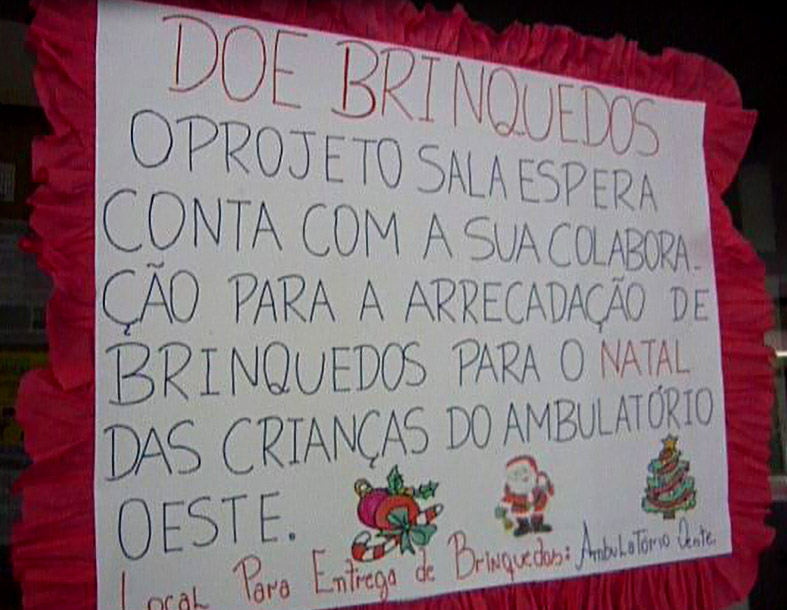 DOE BRINQUEDOS
O PROJETO SALA ESPERA
CONTA COM A SUA COLABORA-
ÇÃO PARA A ARRECADAÇÃO DE
BRINQUEDOS PARA O NATAL
DAS CRIANÇAS DO AMBULATÓRIO
OESTE.
Local Para Entrega de Brinquedos: Ambulatório Oeste